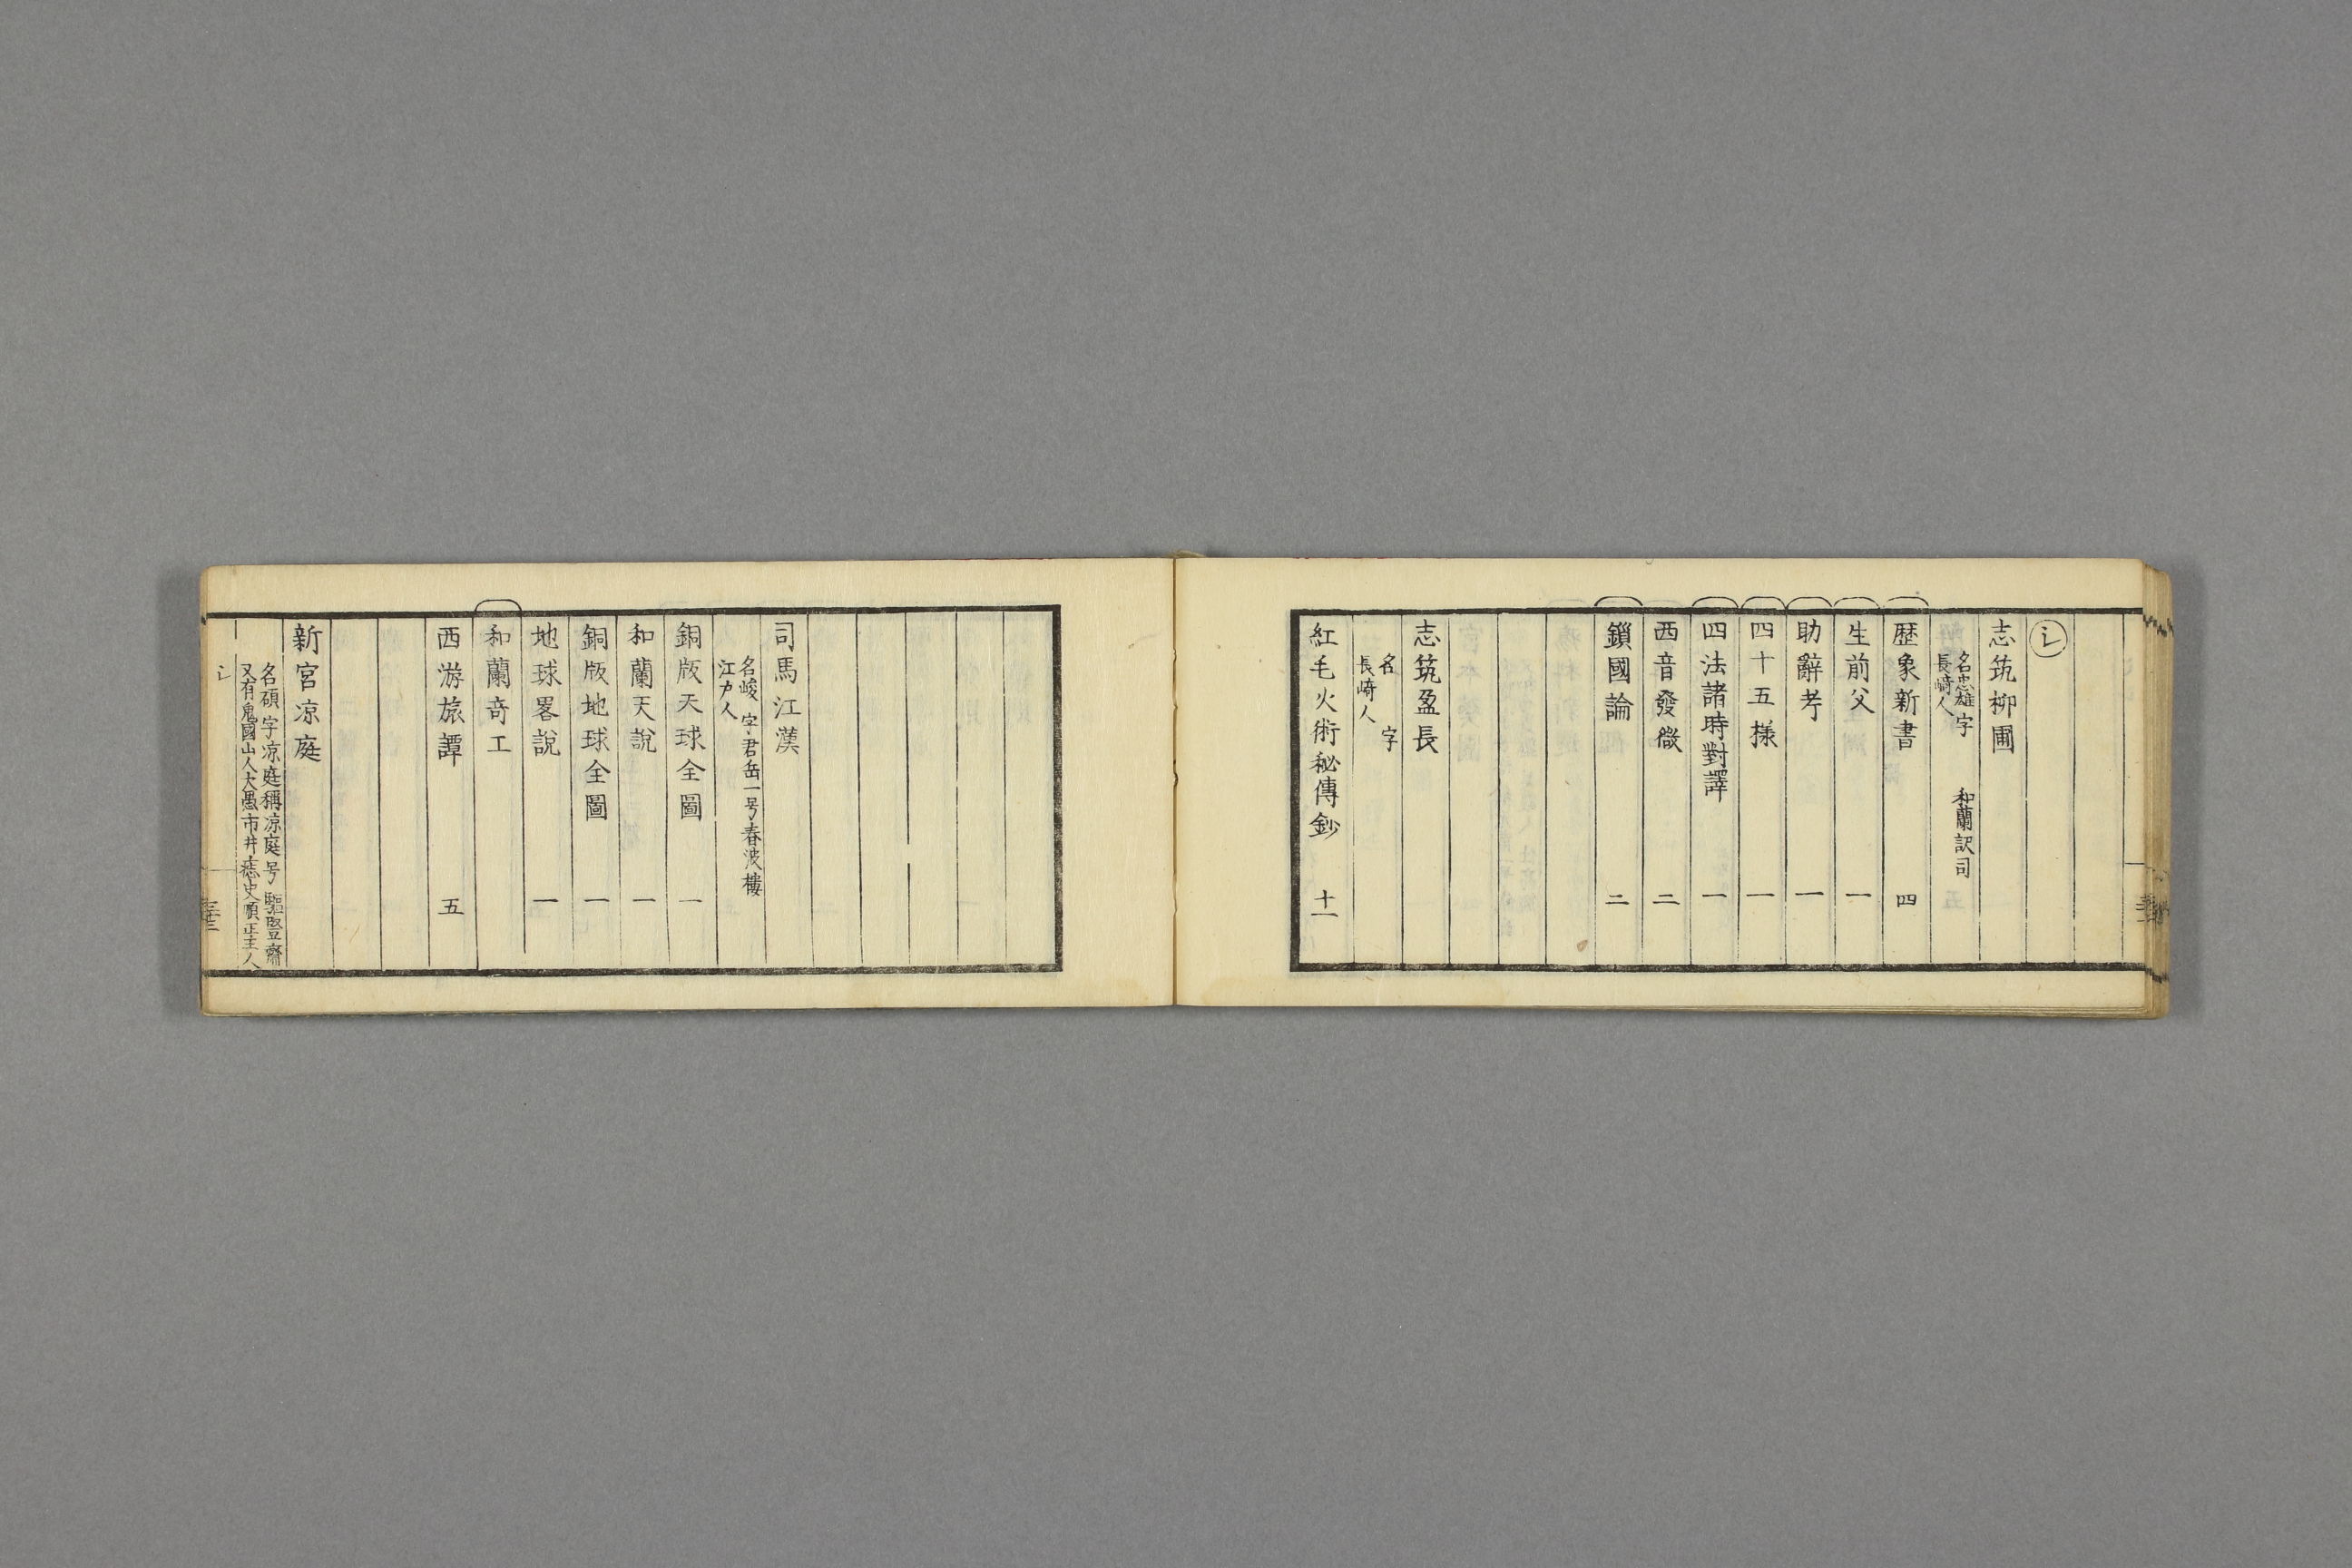 シ
志筑柳圃
名忠雄字 和蘭訳司
長崎人
歴象新書 四
生前父 一
助辭考 一
四十五様 一
四法諸時對譯 一
西音發微 二
鎖國論 二
志筑盈長
名 字
長崎人
紅毛火術秘傳鈔 十一
司馬江漢
名峻 字君岳一号春波樓
江戸人
銅版天球全圖 一
和蘭天説 一
銅版地球全圖 一
地球畧説 一
和蘭奇工
西游旅譚 五
新宮凉庭
名碩 字凉庭稱凉庭号驅豎齋
又有鬼國山人大愚市井 史順正主人
シ